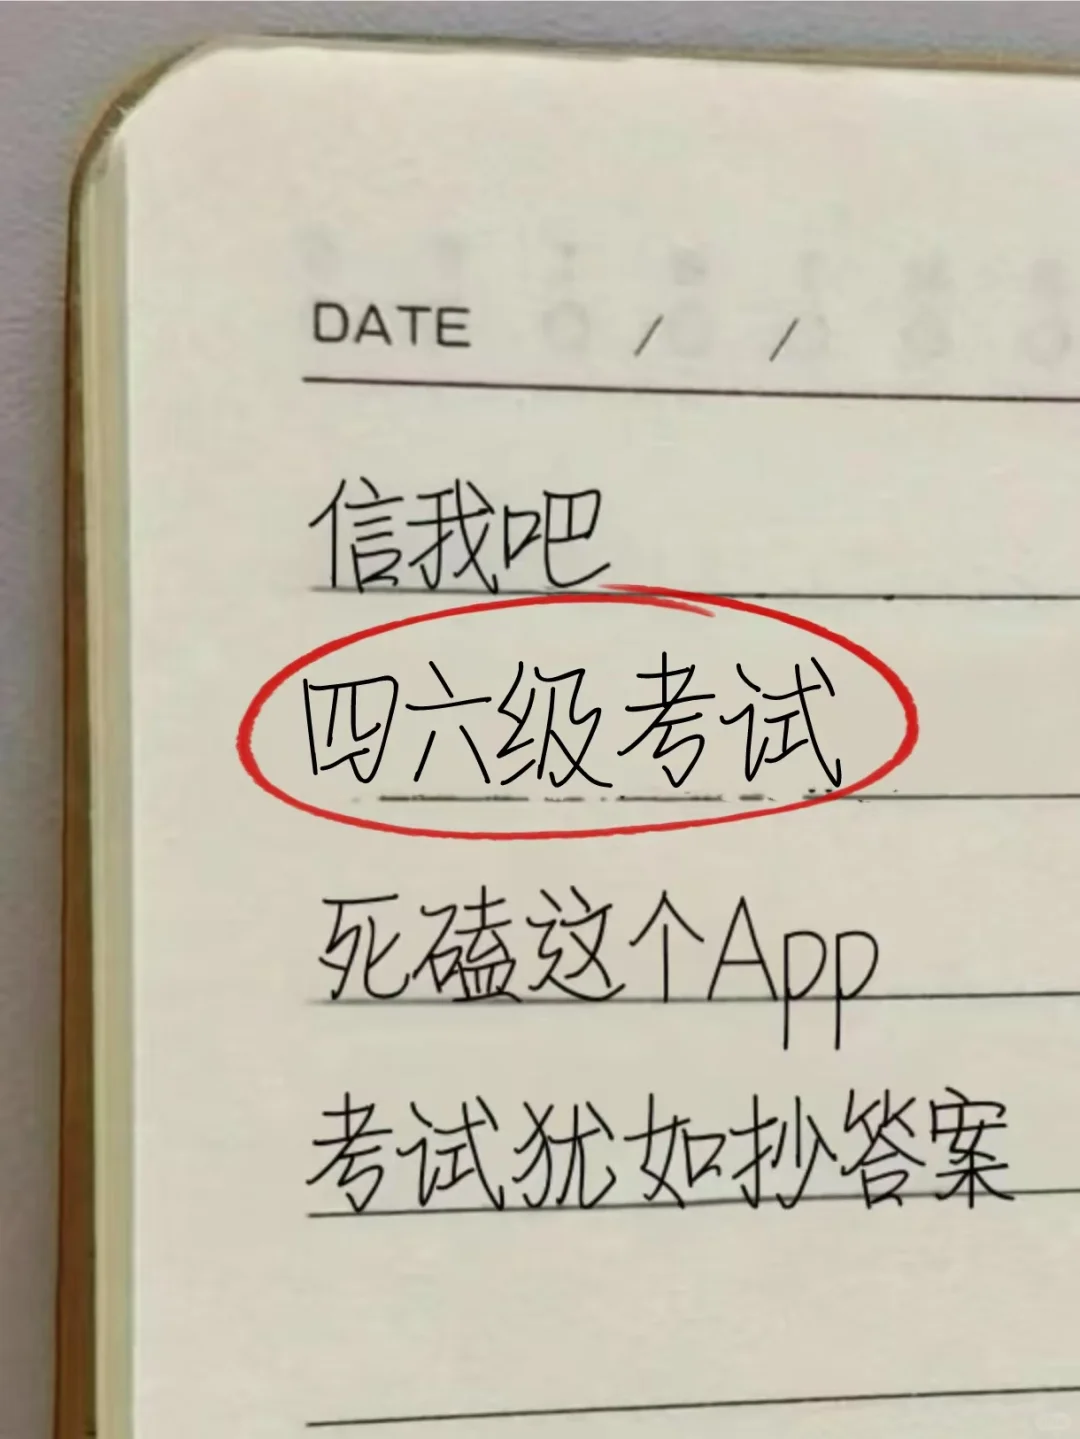 DATE / /
信我吧
四六级考试
死磕这个App
考试犹如抄答案